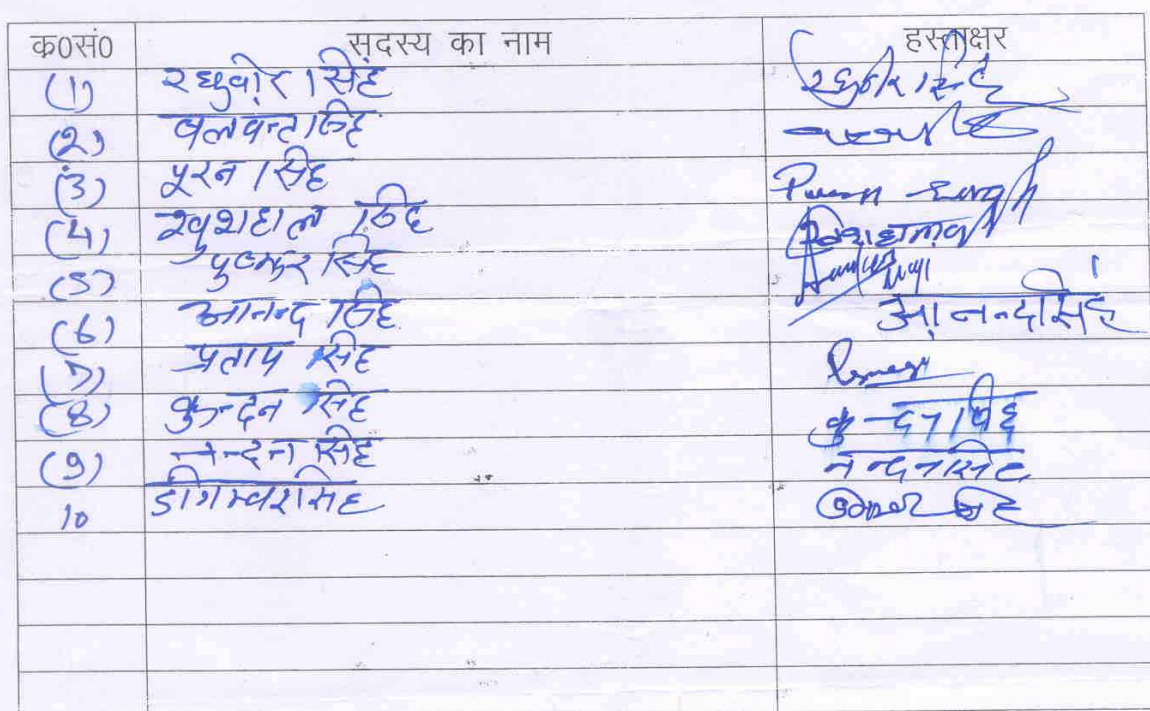 क0सं0 सदस्य का नाम हस्ताक्षर
(1) रघुवीर सिंह रघुवीर सिंह
(2) बलवन्त सिंह
(3) पूरन सिंह Puran Singh
(4) खुशहाल सिंह
(5) पुष्कर सिंह
(6) आनन्द सिंह आनन्द सिंह
(7) प्रताप सिंह
(8) कुन्दन सिंह कुन्दन सिंह
(9) नन्दन सिंह नन्दन सिंह
10 डीगम्वर सिंह